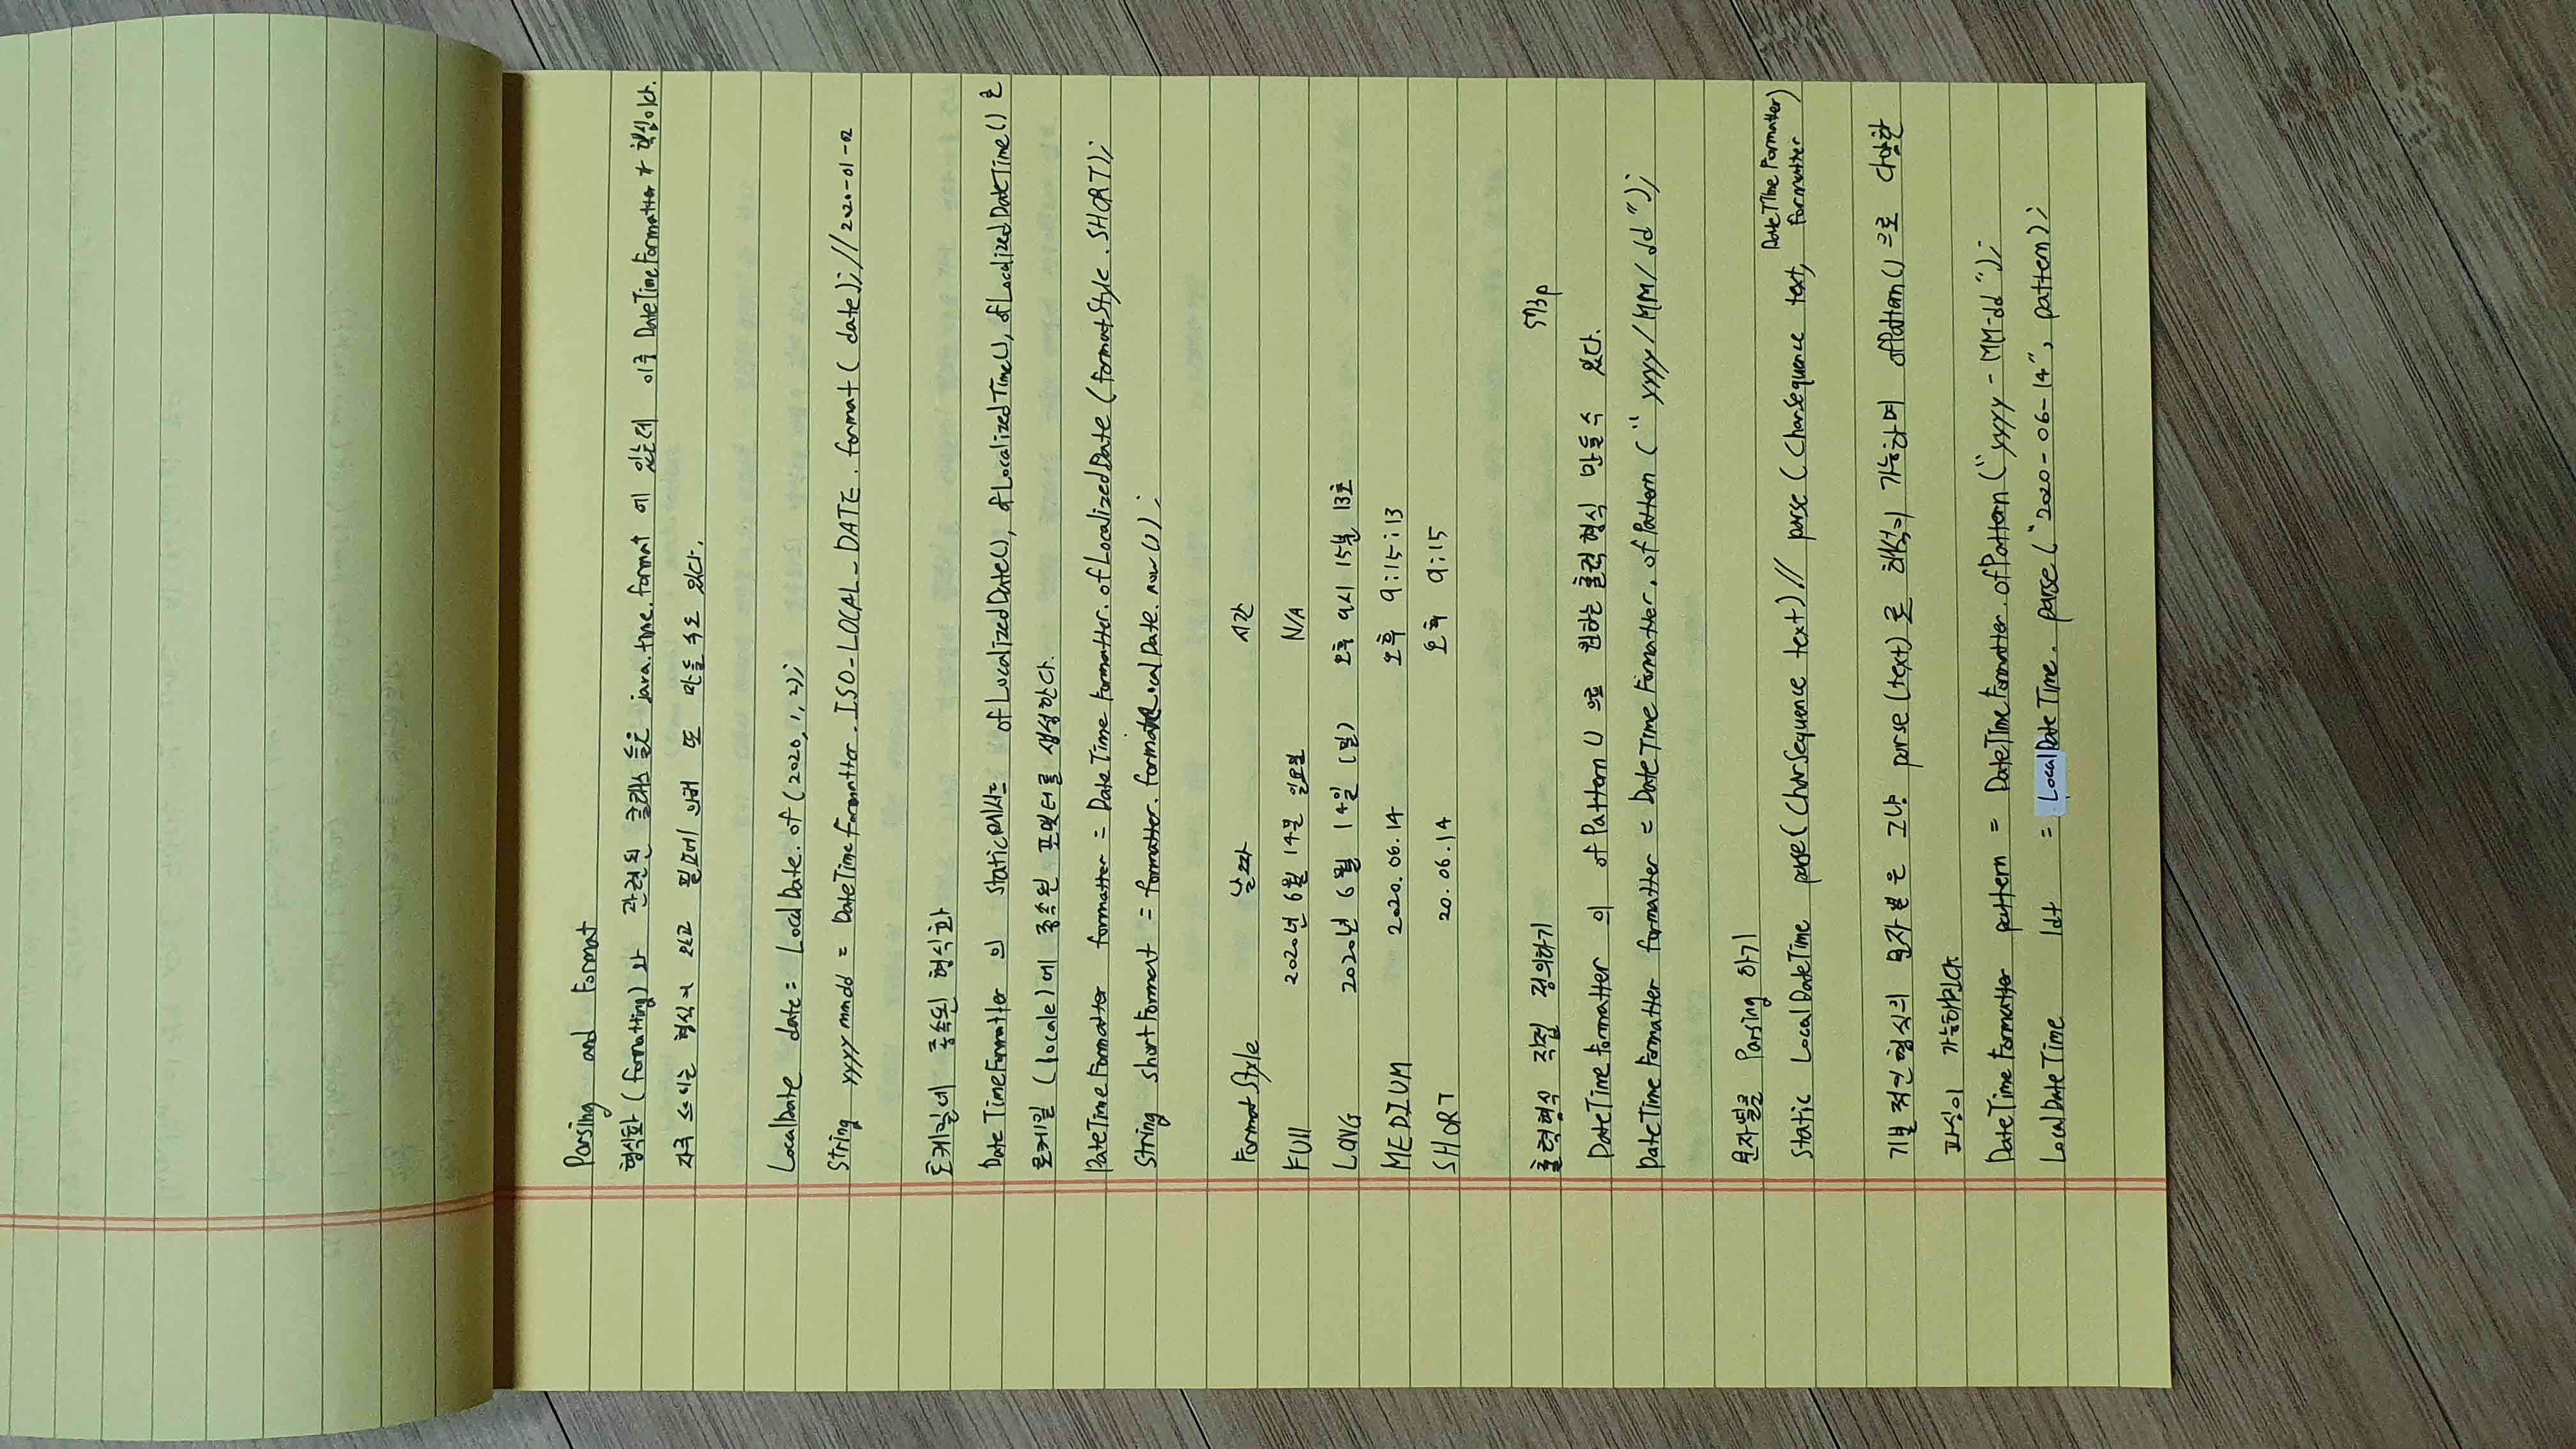 Parsing and Format
형식화 (formatting) 와 관련된 클래스 들은 java.time.format 에 있는데 이중 DateTimeFormatter 가 핵심이다.
자주 쓰이는 형식이 있고 필요에 의해 또 만들 수도 있다.
LocalDate date = LocalDate.of (2020, 1, 2);
String yyyymmdd = DateTimeFormatter.ISO_LOCAL_DATE.format( date); // 2020-01-02
로케일에 종속된 형식화
DateTimeFormatter 의 static메서드 ofLocalizedDate(), ofLocalizedTime(), ofLocalizedDateTime() 은
로케일 (locale)에 종속된 포맷터를 생성한다.
DateTimeFormatter formatter = DateTimeFormatter.ofLocalizedDate (formatStyle.SHORT);
String shortFormat = formatter.format(LocalDate.now());
FormatStyle 날짜 시간
FUll 2020년 6월 14일 일요일 N/A
LONG 2020년 6월 14일 (일) 오후 9시 15분 13초
MEDIUM 2020.06.14 오후 9:15:13
SHORT 20.06.14 오후 9:15
출력형식 직접 정의하기 573p
DateTimeFormatter 의 ofPattern() 으로 원하는 출력형식 만들수 있다.
DateTimeFormatter formatter = DateTimeFormatter.ofPattern (" yyyy/MM/dd");
문자열을 Parsing 하기
static LocalDateTime parse( CharSequence text) // parse ( CharSequence text, DateTimeFormatter formatter)
기본적인 형식의 문자열은 그냥 parse (text) 로 해석이 가능하며 ofPattern() 으로 다양한
파싱이 가능해진다
DateTimeFormatter pattern = DateTimeFormatter.ofPattern ("yyyy-MM-dd");
LocalDateTime ldt = LocalDateTime.parse ("2020-06-14", pattern);